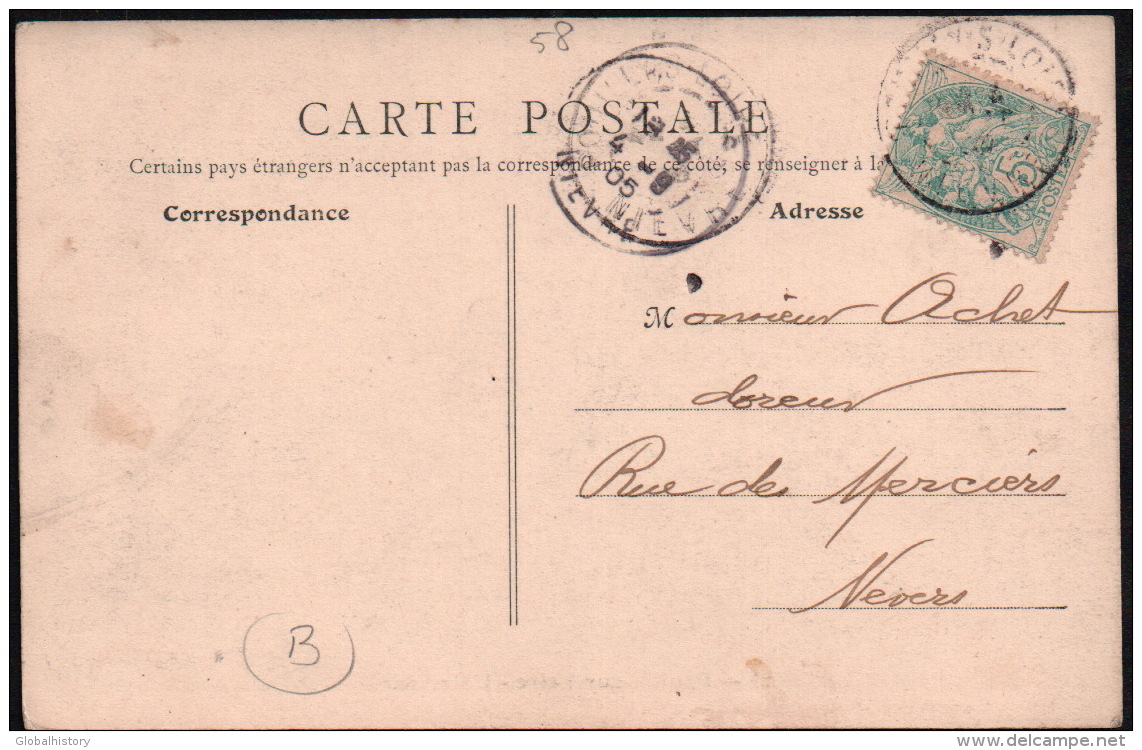 58
CARTE POSTALE
Certains pays étrangers n'acceptant pas la correspondance de ce côté, se renseigner à la
Correspondance
Adresse
Monsieur Achet
doreur
Rue des Merciers
Nevers
B
Globalhistory
www.delcampe.net